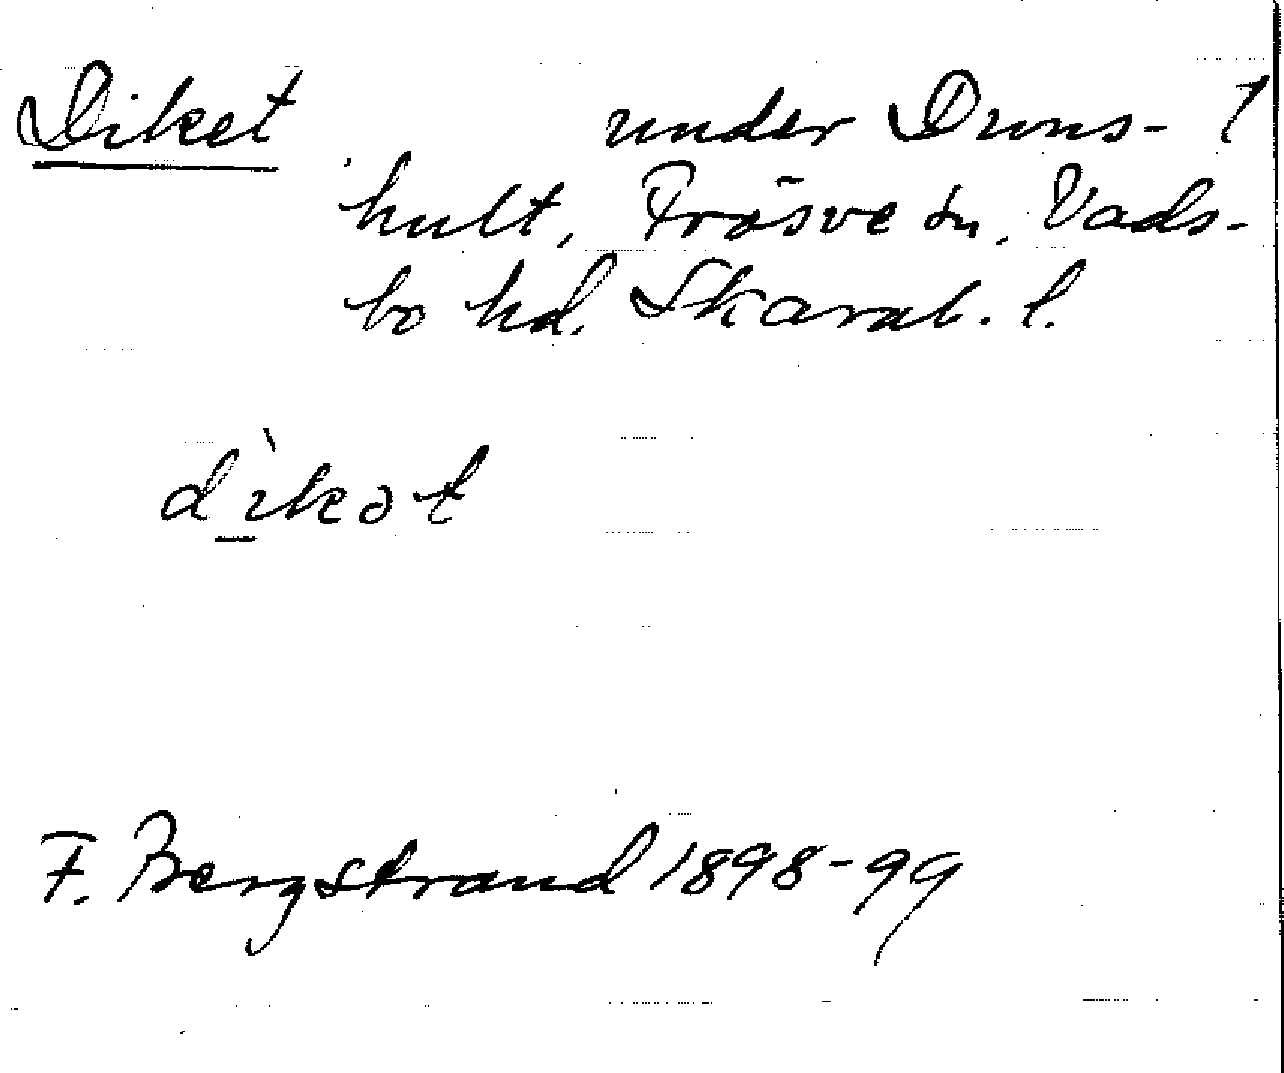 Diket under Duns-
hult, Fräsve sn. Vads-
bo hd. Skarab. l.
dìkət
F. Bergstrand 1898-99